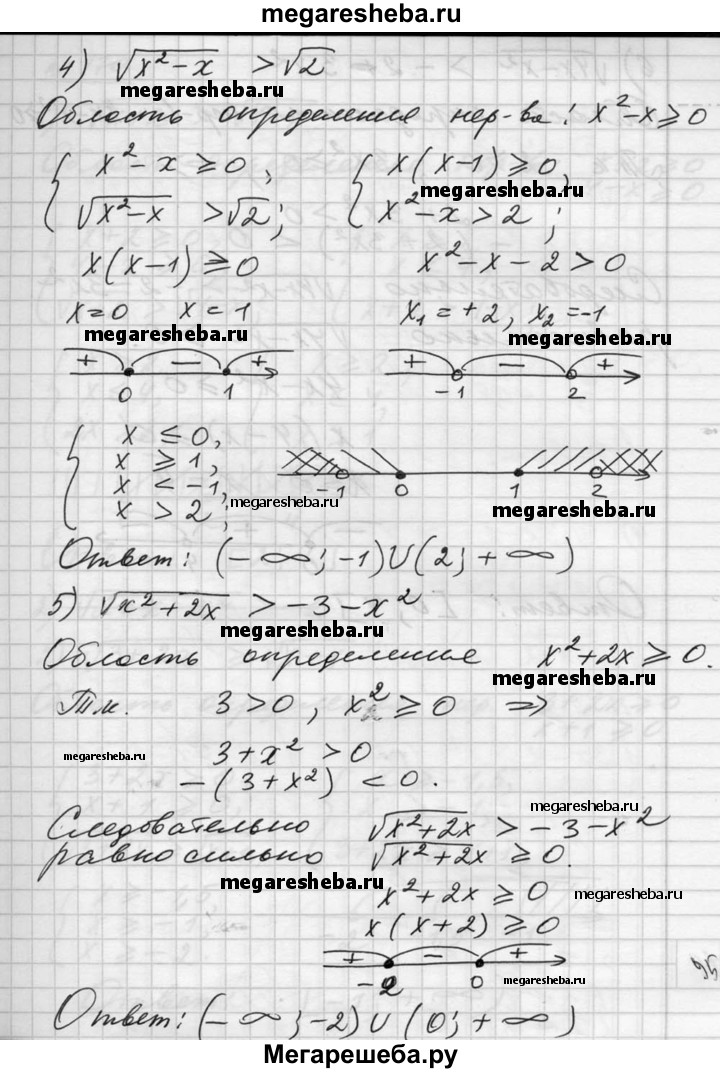 megaresheba.ru
4) √(x² - x) > √2
megaresheba.ru
Область определения нер-ва: x² - x ≥ 0
{ x² - x ≥ 0, { x(x-1) ≥ 0,
megaresheba.ru
√(x² - x) > √2; x² - x > 2;
x(x-1) ≥ 0 x² - x - 2 > 0
x=0 x=1 x₁ = +2, x₂ = -1
megaresheba.ru megaresheba.ru
+ - + + - +
0 1 -1 2
{ x ≤ 0,
x ≥ 1,
x < -1,
x > 2;
-1 0 1 2
megaresheba.ru megaresheba.ru
Ответ: (-∞; -1) U (2; +∞)
5) √(x² + 2x) > -3 - x²
megaresheba.ru
Область определения x² + 2x ≥ 0.
megaresheba.ru
Т.к. 3 > 0, x² ≥ 0 ⇒
megaresheba.ru 3 + x² > 0
-(3 + x²) < 0.
megaresheba.ru
Следовательно √(x² + 2x) > -3 - x²
равносильно √(x² + 2x) ≥ 0.
megaresheba.ru
x² + 2x ≥ 0 megaresheba.ru
x(x + 2) ≥ 0
+ - +
-2 0 megaresheba.ru
Ответ: (-∞; -2) U (0; +∞)
Мегарешеба.ру